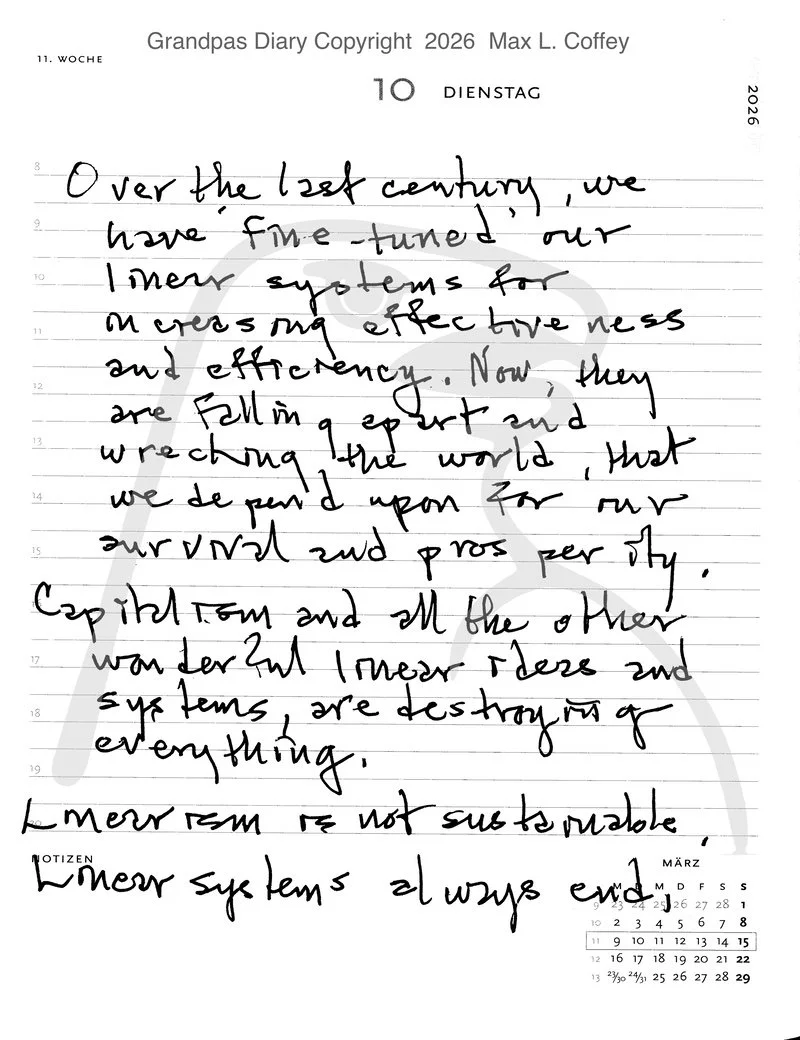 Grandpas Diary Copyright 2026 Max L. Coffey
11. WOCHE
10 DIENSTAG
2026
8
Over the last century, we
9
have 'fine-tuned' our
10
linear systems for
11
increasing effectiveness
and efficiency. Now, they
12
are falling apart and
13
wrecking the world, that
14
we depend upon for our
15
survival and prosperity.
Capitalism and all the other
17
wonderful linear ideas and
18
systems, are destroying
everything.
19
Linearism is not sustainable.
20
NOTIZEN
Linear systems always end.
MÄRZ
M D M D F S S
9 23 24 25 26 27 28 1
10 2 3 4 5 6 7 8
11 9 10 11 12 13 14 15
12 16 17 18 19 20 21 22
13 23/30 24/31 25 26 27 28 29